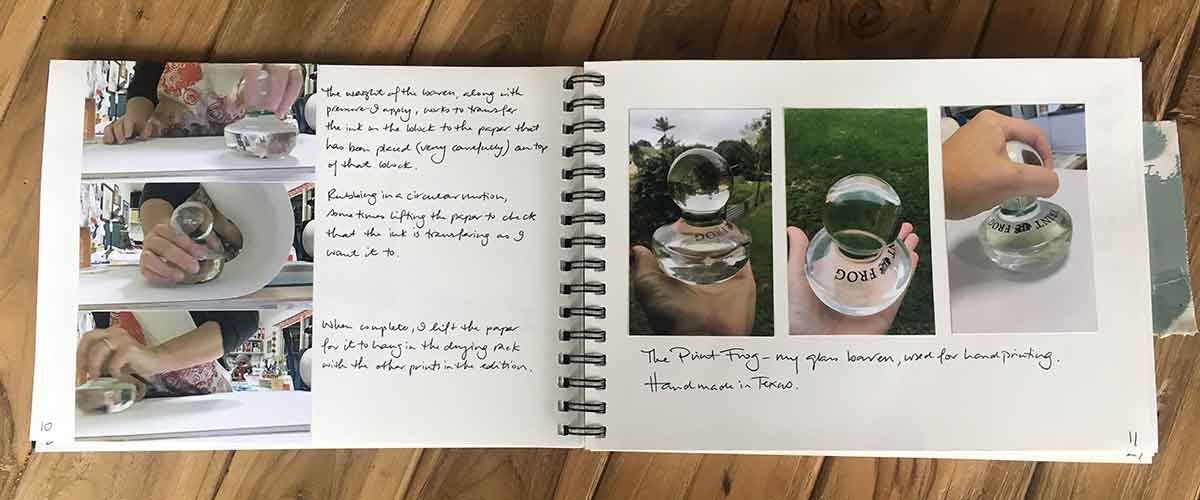 The weight of the baren, along with
pressure I apply, works to transfer
the ink on the block to the paper that
has been placed (very carefully) on top
of that block.
Rubbing in a circular motion,
sometimes lifting the paper to check
that the ink is transfering as I
want it to.
When complete, I lift the paper
for it to hang in the drying rack
with the other prints in the edition.
10
FROG
NT FROG
PRINT FROG
The Print Frog – my glass baren, used for handprinting.
Handmade in Texas.
11